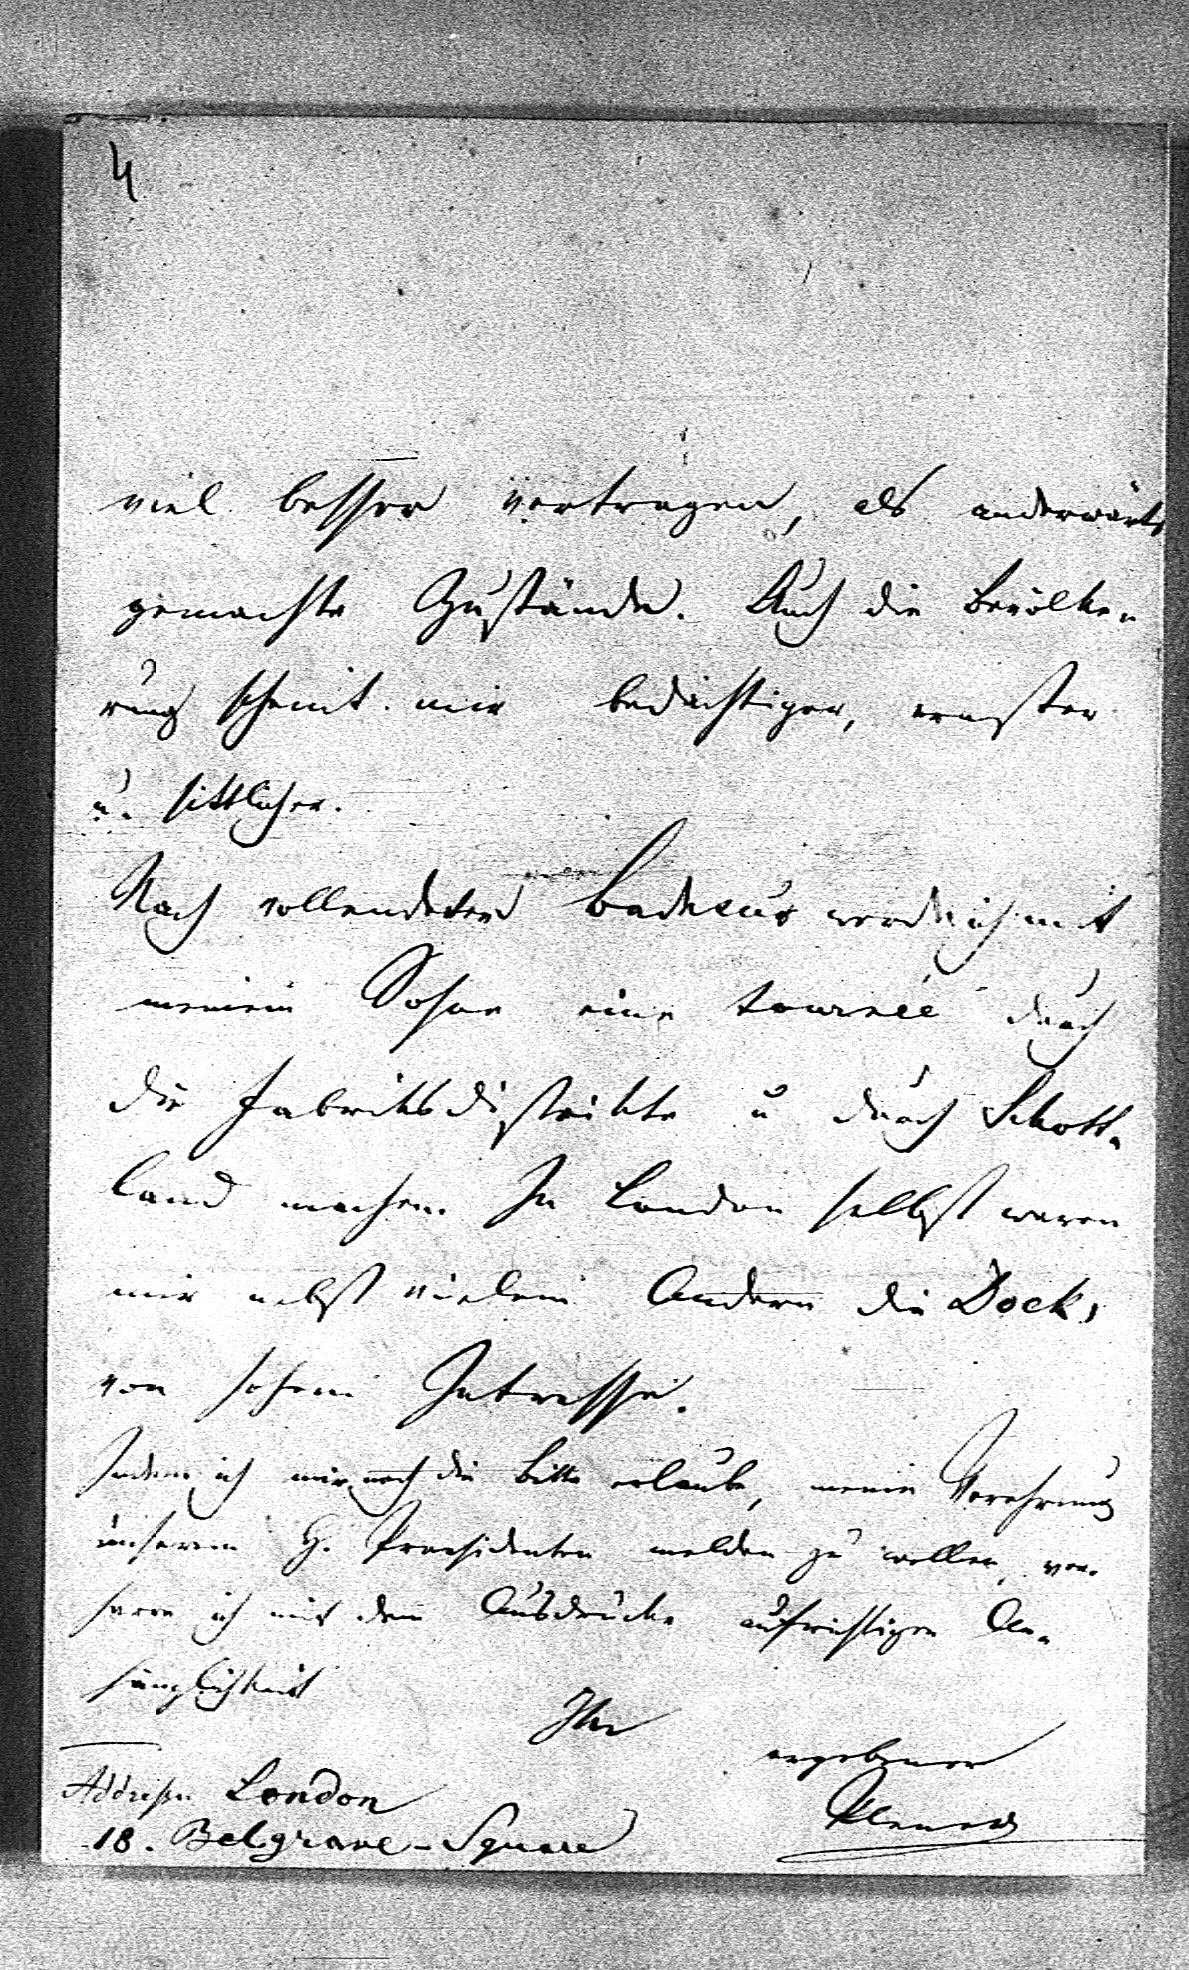 4
viel besser vertragen, als anderwärts
gemachte Zustände. Auch die Bevölke-
rung scheint mir bedächtiger, ernster
u. sittlicher.
Nach vollendeter Badecur werde ich mit
meinem Sohne eine tournée durch
die Fabriksdistrikte u durch Schott-
land machen. In London selbst waren
mir nebst vielem Andern die Docks
von hohem Interesse.
Indem ich mir noch die Bitte erlaube, meine Verehrung
unserem H. Praesidenten melden zu wollen, ver-
harre ich mit dem Ausdrucke aufrichtiger An-
hänglichkeit
Ihr
ergebener
Plener
Addresse London
18. Belgrave-Square